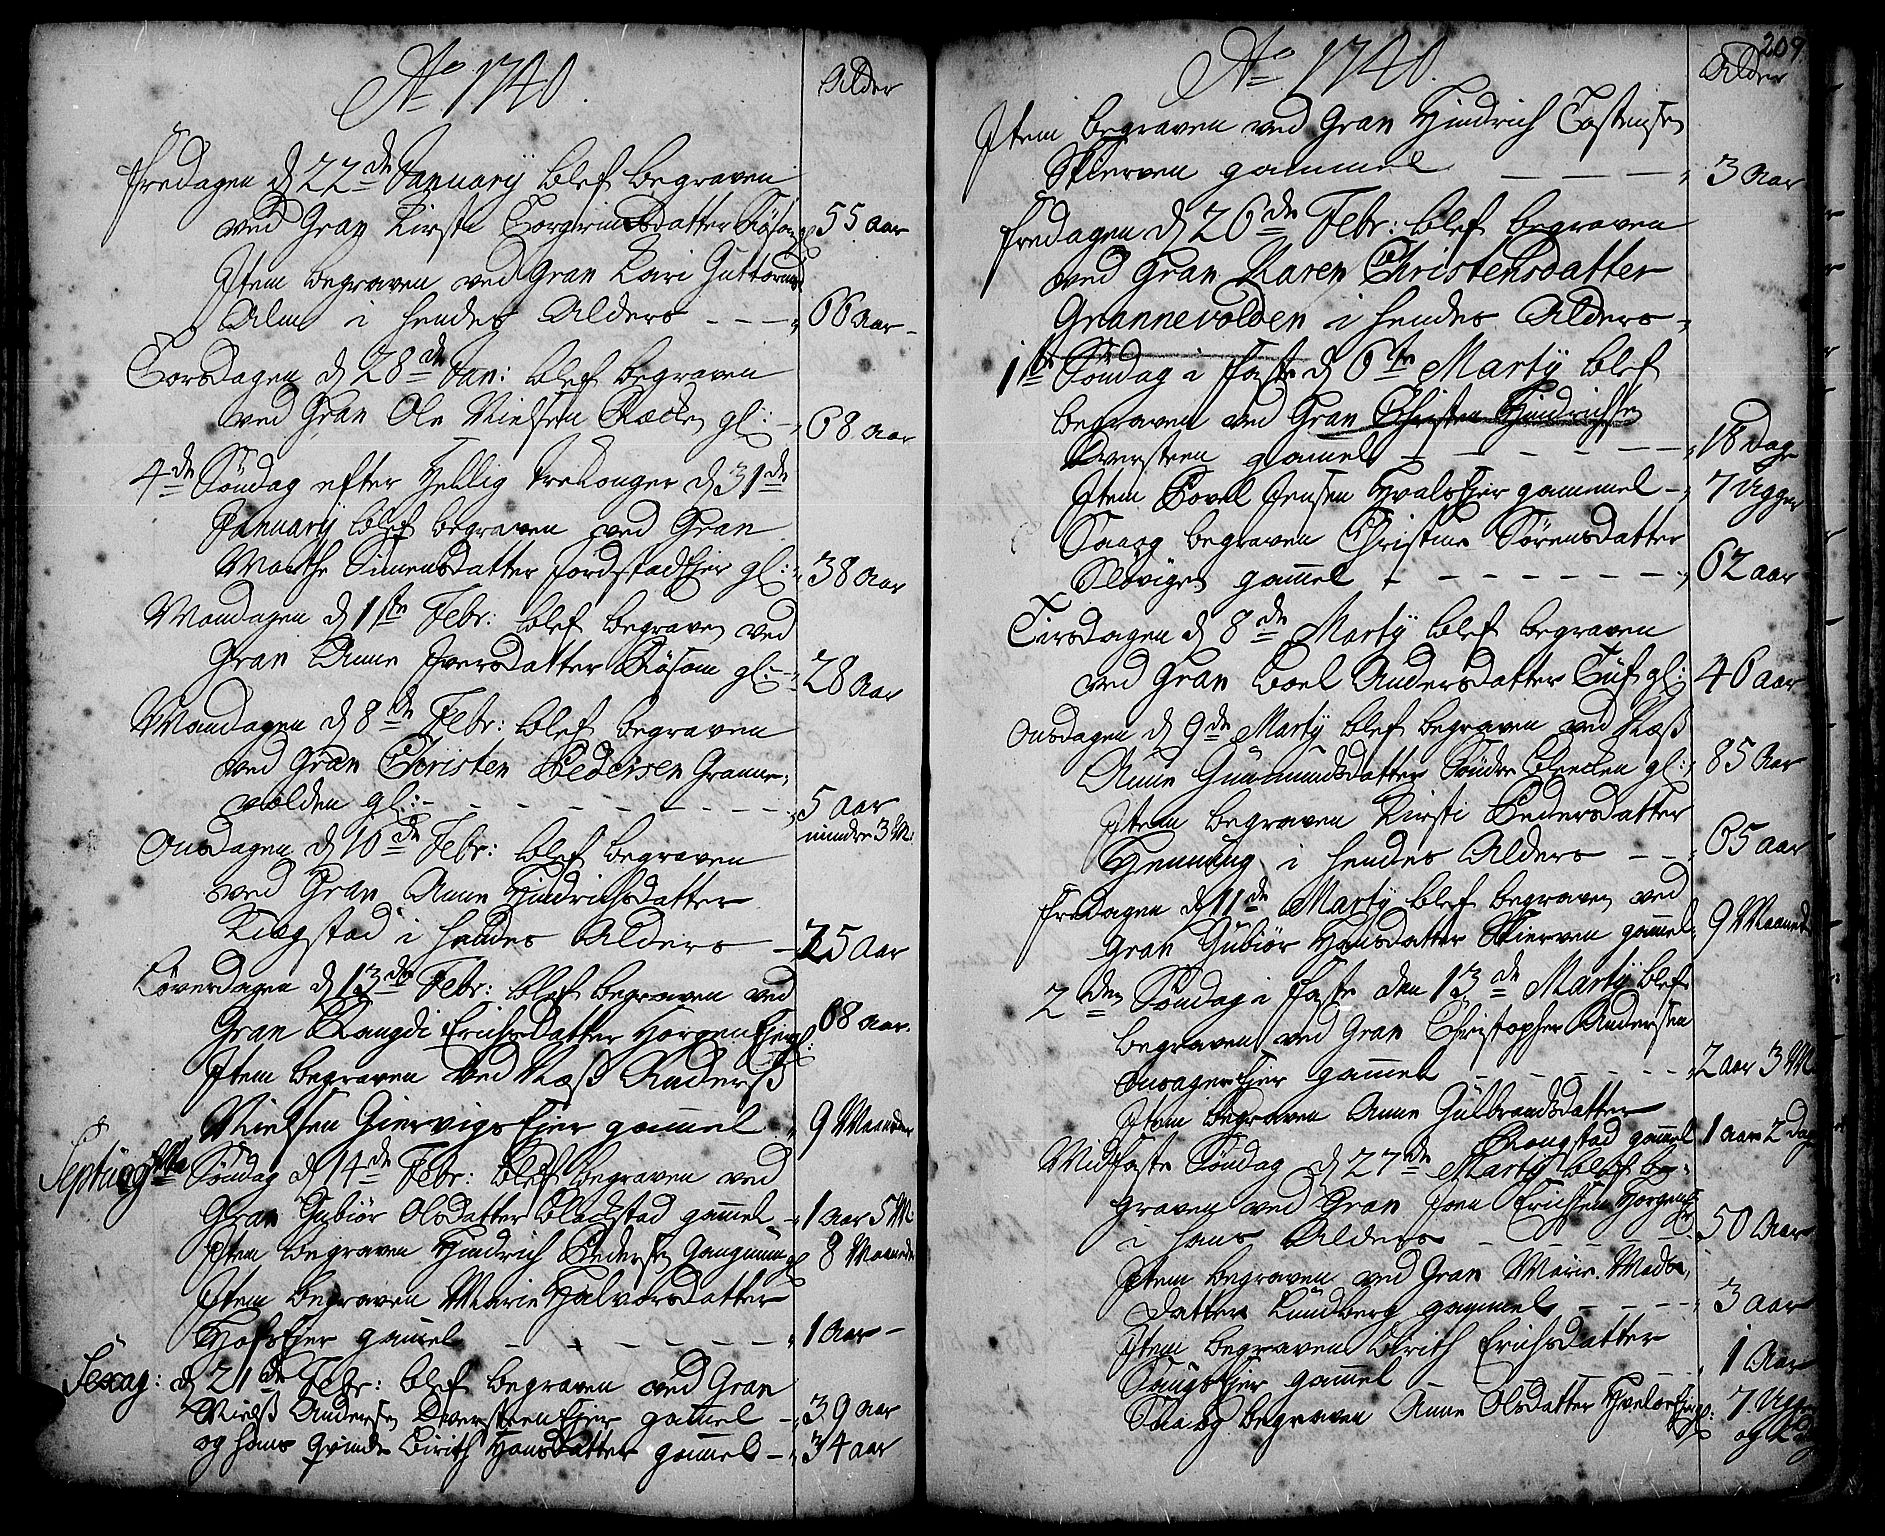 Ao 1740.
Alder
Fredagen d 22de January blef begraven
ved Gran Kirsti Torgrimsdatter Røsom gl: 55 aar
Item begraven ved Gran Kari Guttorms
Alm i hendes Alders - - - 66 aar -
Torsdagen d 28de Jan: blef begraven
ved Gran Ole Nielsen gl: - 68 aar
4de Søndag efter Hellig treKonger d 31de
January blef begraven ved Gran
Marthe Simensdatter JordstadEjer gl: 38 aar
Mandagen d 1ste Febr: blef begraven ved
Gran Anne Iversdatter Røsom gl: - 28 aar
Mandagen d 8de Febr: blef begraven
ved Gran Christen Pedersen Granne-
volden gl: - - - - - - - 5 aar
mindre 3 M:
Onsdagen d 10de Febr: blef begraven
ved Gran Anne Hindrichsdatter
i hendes Alders - 25 aar
Løverdagen d 13de Febr: blef begraven ved
Gran Rangdi Erichsdatter HorgenEjer gl: 68 aar.
Item begraven ved Næss Anders
Nielsen GiervigsEjer gammel - 9 Maaneder
Septuag: Søndag d 14de Febr: blef begraven ved
Gran Gubiør Olsdatter Blackstad gammel - 1 aar 5 M:
Item begraven Hindrich Pedersen gl 8 Maaneder
Item begraven Marie Halvorsdatter
HofsEjer gammel - - - - - 1 aar -
Sexag: d 21de Febr: blef begraven ved Gran
Niels Andersen DversteenEjer gammel - 39 aar
og hans qvinde Birith Hansdatter gammel - 34 aar
209
Ao 1740.
Alder
Item begraven ved Gran Hindrich Tostensen
Skierven gammel - - - - 3 aar
Fredagen d 26de Febr: blef begraven
ved Gran Karen Christensdatter
Grannevolden i hendes Alders -
1ste Søndag i Faste d 6te Marty blef
begraven ved Gran Christen Hindrichsen
Dversteen gamel - - - - - - 18 Dage
Item Povel Jensen HvalsEjer gammel - 7 Ugger
Saa og begraven Christine Sørensdatter
gamel - - - - - - - - 62 aar
Tirsdagen d 8de Marty blef begraven
ved Gran Boel Andersdatter Tuf gl: 46 aar
Onsdagen d 9de Marty blef begraven ved Næss
Anne Gudmundsdatter Søndre gl: 85 aar
Item begraven Kirsti Pedersdatter
Henning i hendes Alders - - 65 aar
Fredagen d 11de Marty blef begraven ved
Gran Gubiør Hansdatter Skierven gammel 9 Maaneder
2den Søndag i Faste den 13de Marty blef
begraven ved Gran Christopher Andersen
OnsagerEjer gammel - - - - - 2 aar 3 M
Item begraven Anne Gulbrandsdatter
Rangstad gammel 1 aar 2 Dag
Midfaste Søndag d 27de Marty blef be-
graven ved Gran Joen Erichsen HorgenEjer
i hans Alders - - - - - 50 aar
Item begraven ved Gran Marie Mads-
datter Lundberg gammel - - - - 3 aar
Item begraven Birith Erichsdatter
SangsEjer gammel - - - 1 aar
Saa og begraven Anne Olsdatter HvalsEje gl: 7 Ugger